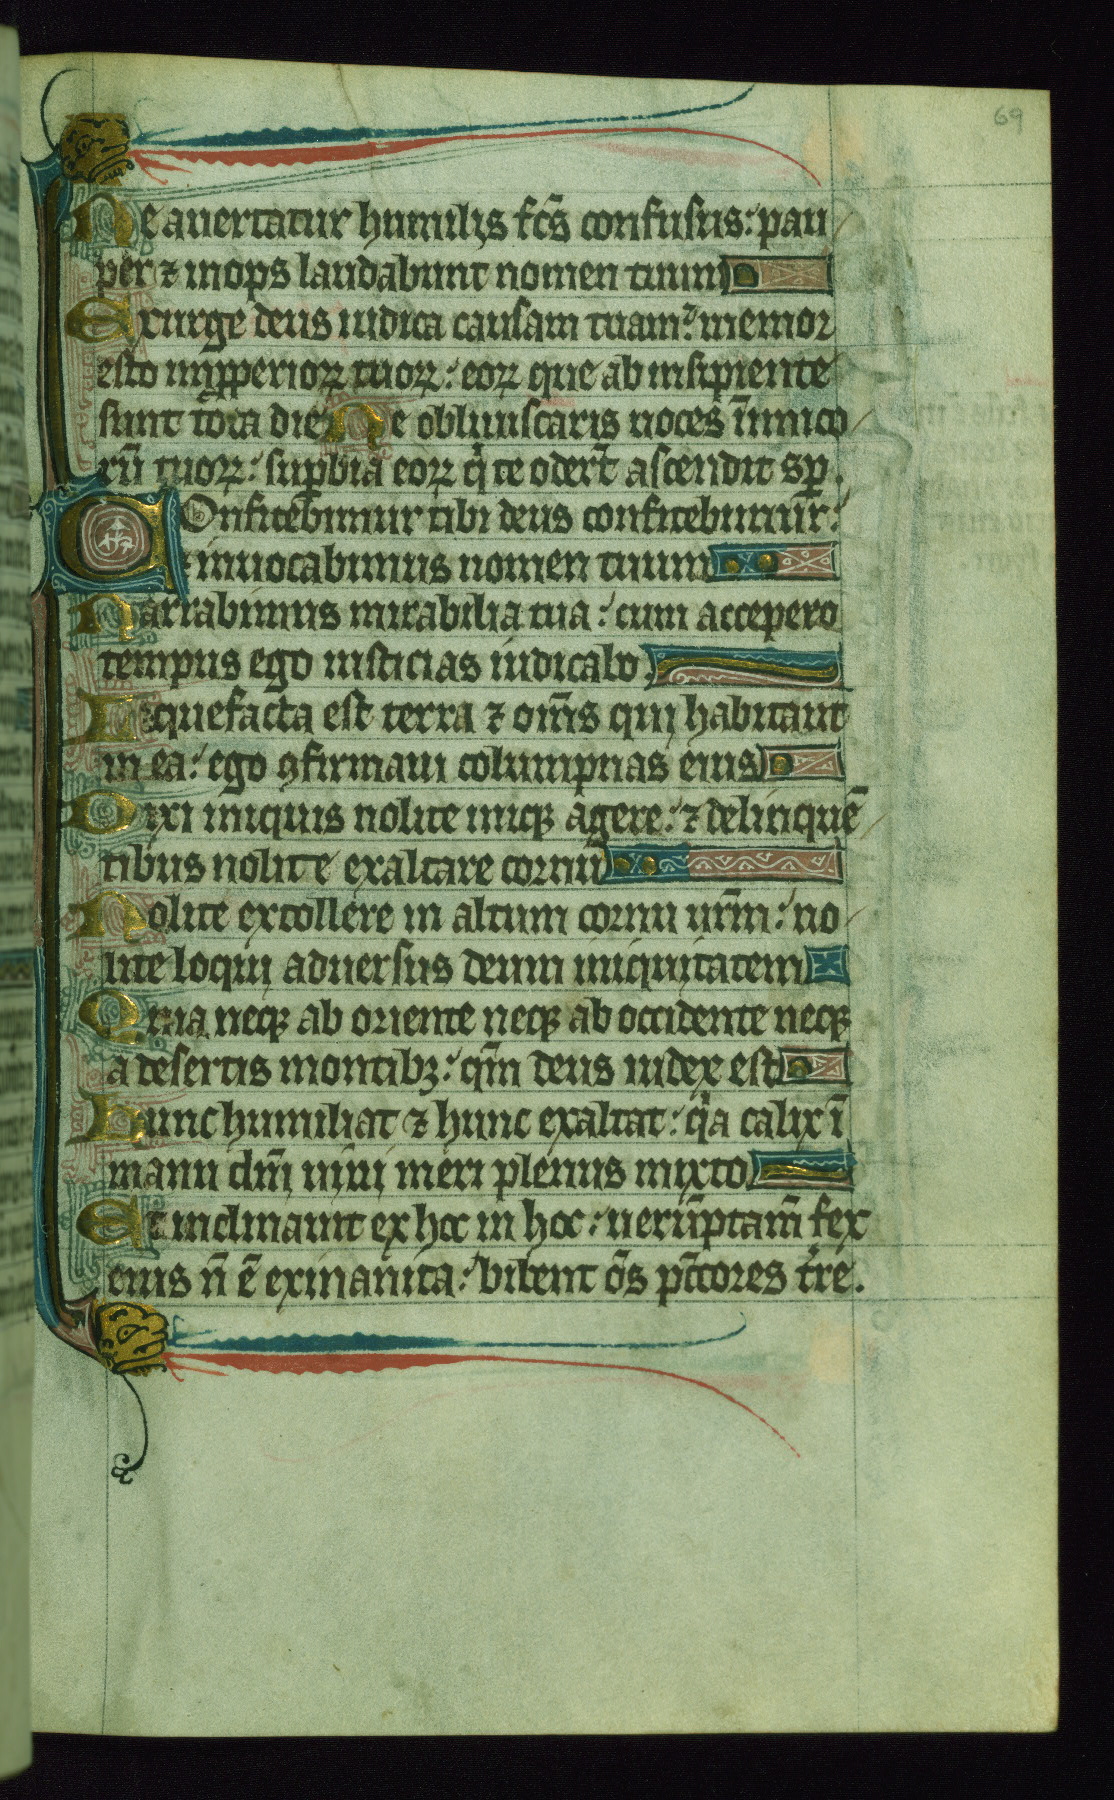 69
Ne auertatur humilis fc̄s confusus: pau
per ⁊ inops laudabunt nomen tuum
Exurge deus iudica causam tuam: memor
esto improperiorꝝ tuorꝝ: eorꝝ que ab insipiente
sunt tota die. Ne obliuiscaris uoces īnimico
rū tuorꝝ: suꝑbia eorꝝ qͥ te odert̄ ascendit sꝑ.
Confitebimur tibi deus confitebimur:
⁊ inuocabimus nomen tuum
Narrabimus mirabilia tua: cum accepero
tempus ego iusticias iudicabo.
Liquefacta est terra ⁊ om̄s qui habitant
in ea: ego ꝯfirmaui columpnas eius
Dixi iniquis nolite iniqꝫ agere: ⁊ delinquē
tibus nolite exaltare cornū
Nolite extollere in altum cornu ur̄m: no
lite loqui aduersus deum iniquitatem
Quia neqꝫ ab oriente neqꝫ ab occidente neqꝫ
a desertis montibꝫ: qm̄ deus iudex est
Hunc humiliat ⁊ hunc exaltat: qͥa calix ī
manu dn̄i uini meri plenus mixto
Et inclinauit ex hoc in hoc: uerūptam̄ fex
eius n̄ ē exinanita: bibent ōs pc̄cores tͬre.